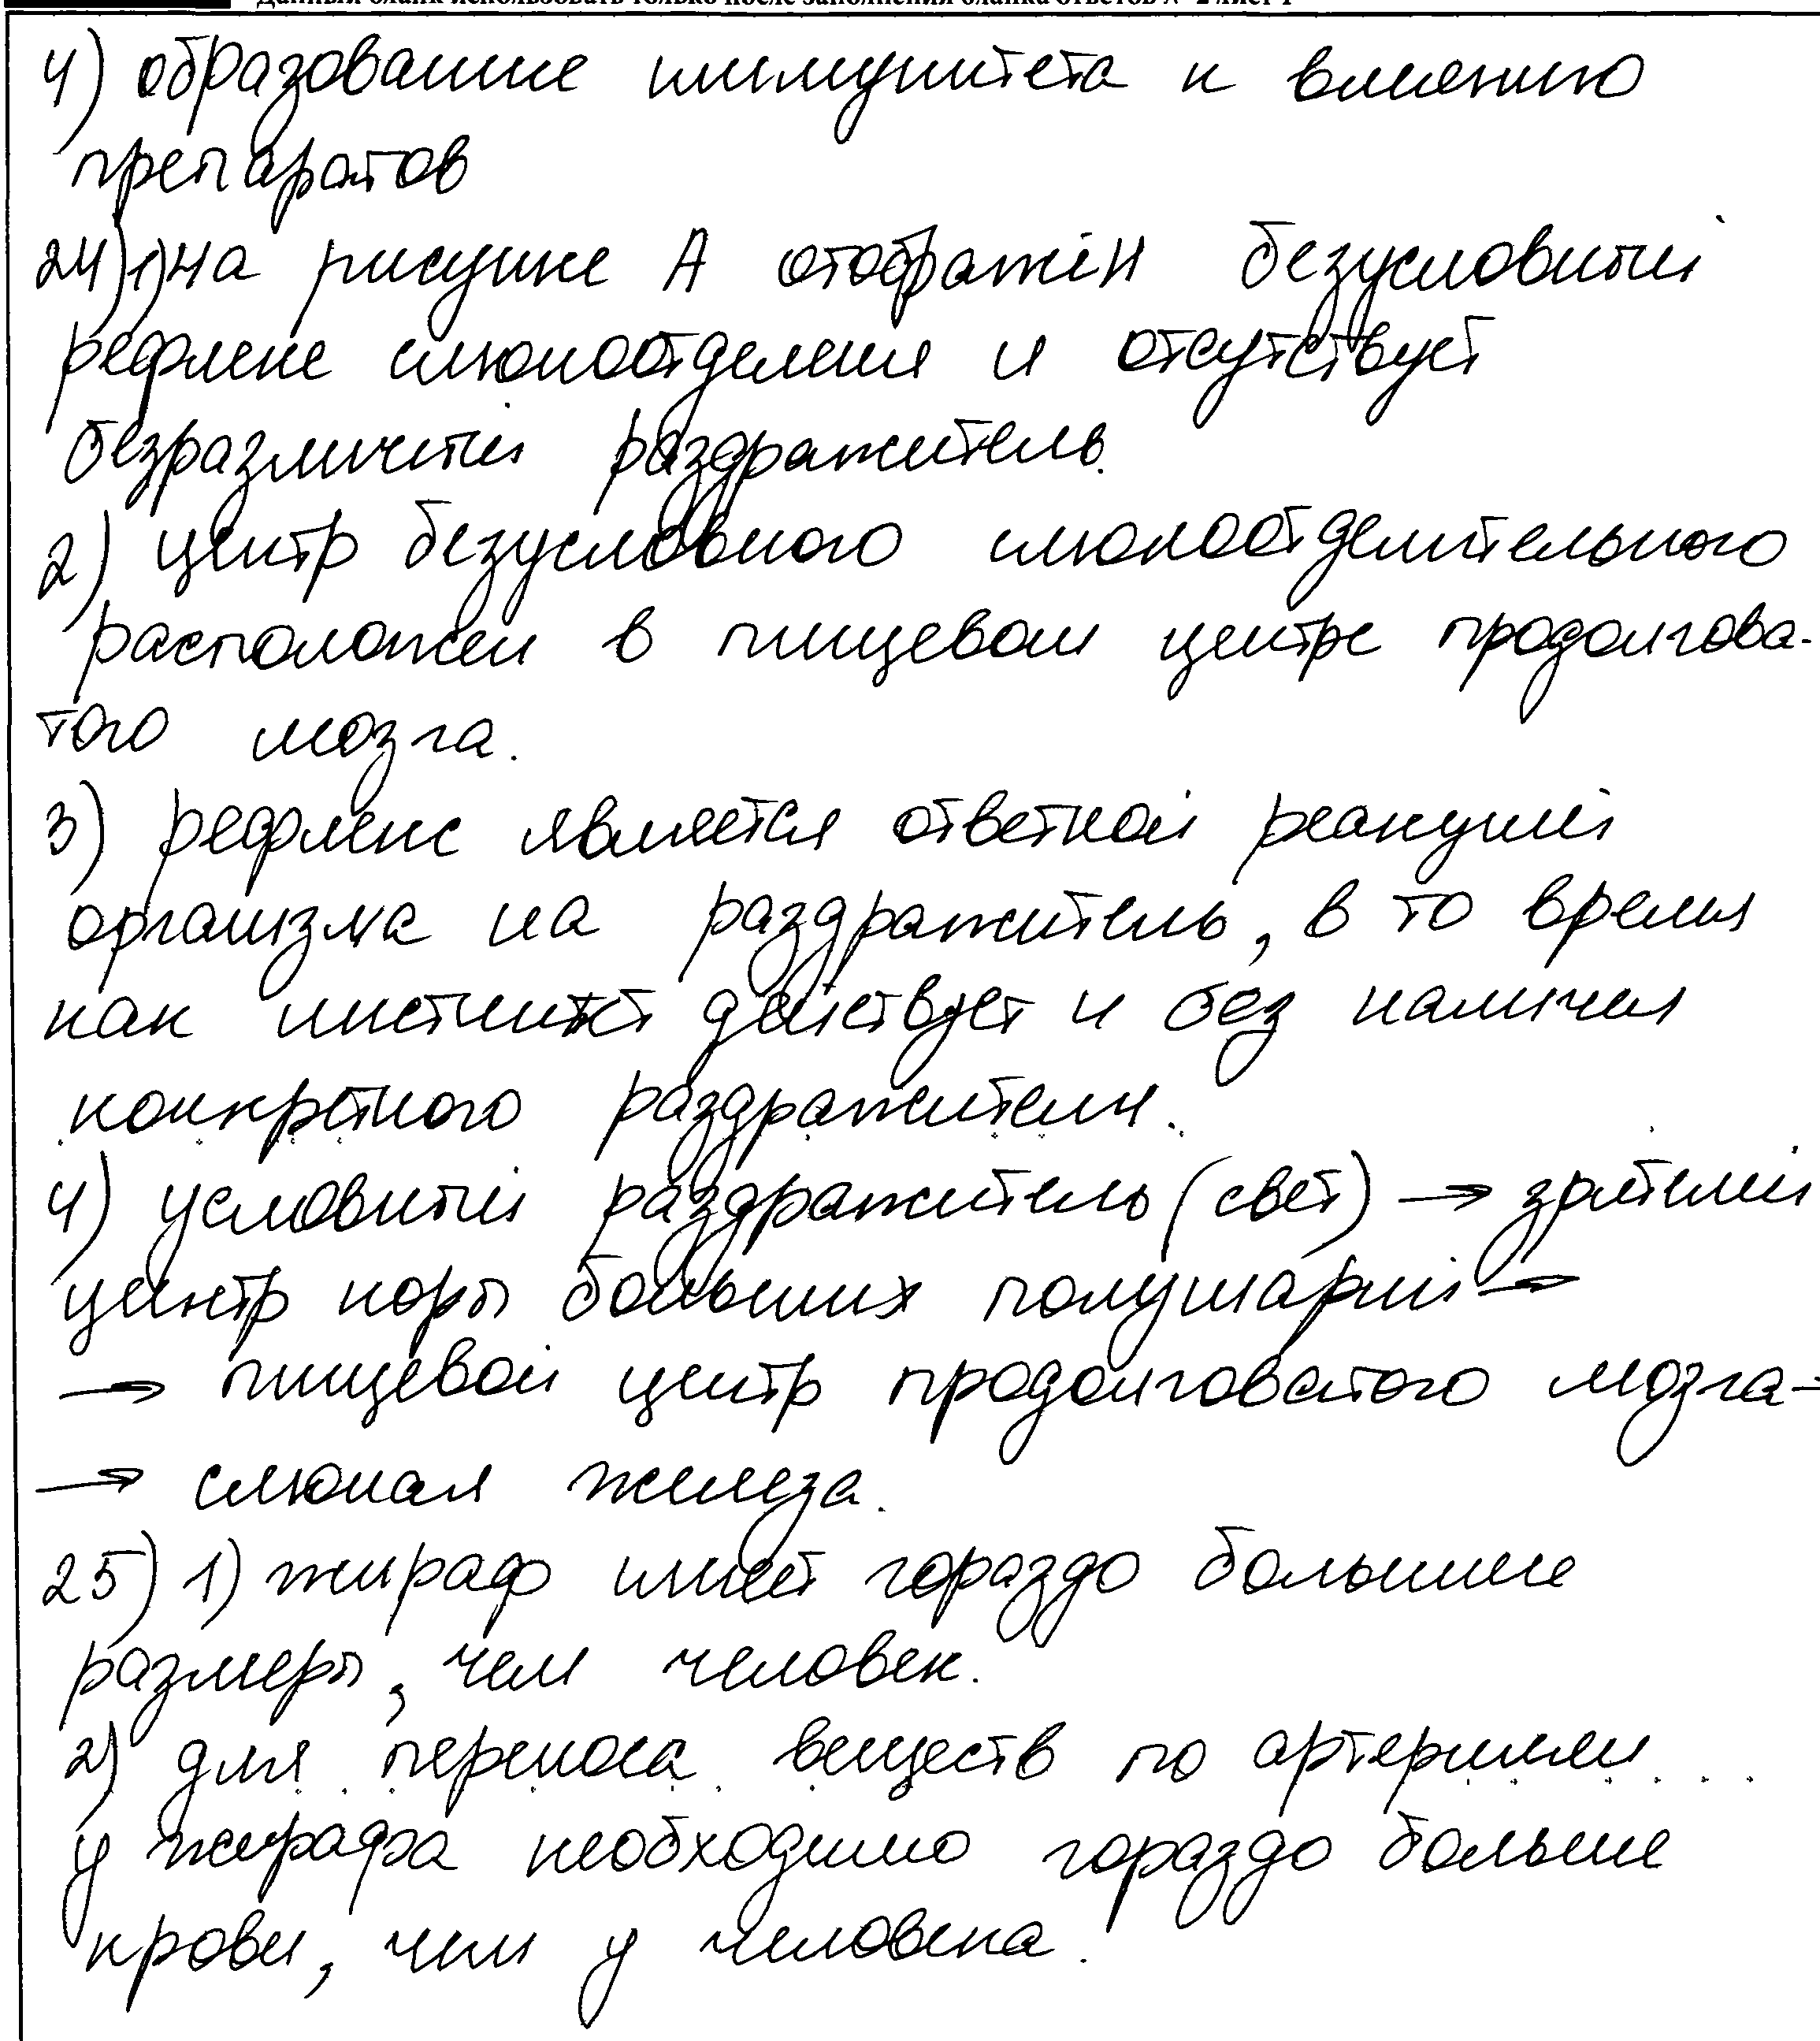 Данный бланк использовать только после заполнения бланка ответов № 2 лист 1
4) образование иммунитета к влиянию
препаратов
24) 1) На рисунке А отображён безусловный
рефлекс слюноотделения и отсутствует
безразличный раздражитель.
2) центр безусловного слюноотделительного
расположен в пищевом центре продолгова-
того мозга.
3) рефлекс является ответной реакцией
организма на раздражитель, в то время
как инстинкт действует и без наличия
конкретного раздражителя.
4) условный раздражитель (свет) → зрительный
центр коры больших полушарий →
→ пищевой центр продолговатого мозга →
→ слюнная железа.
25) 1) жираф имеет гораздо большие
размеры, чем человек.
2) для переноса веществ по артериям
у жирафа необходимо гораздо больше
крови, чем у человека.